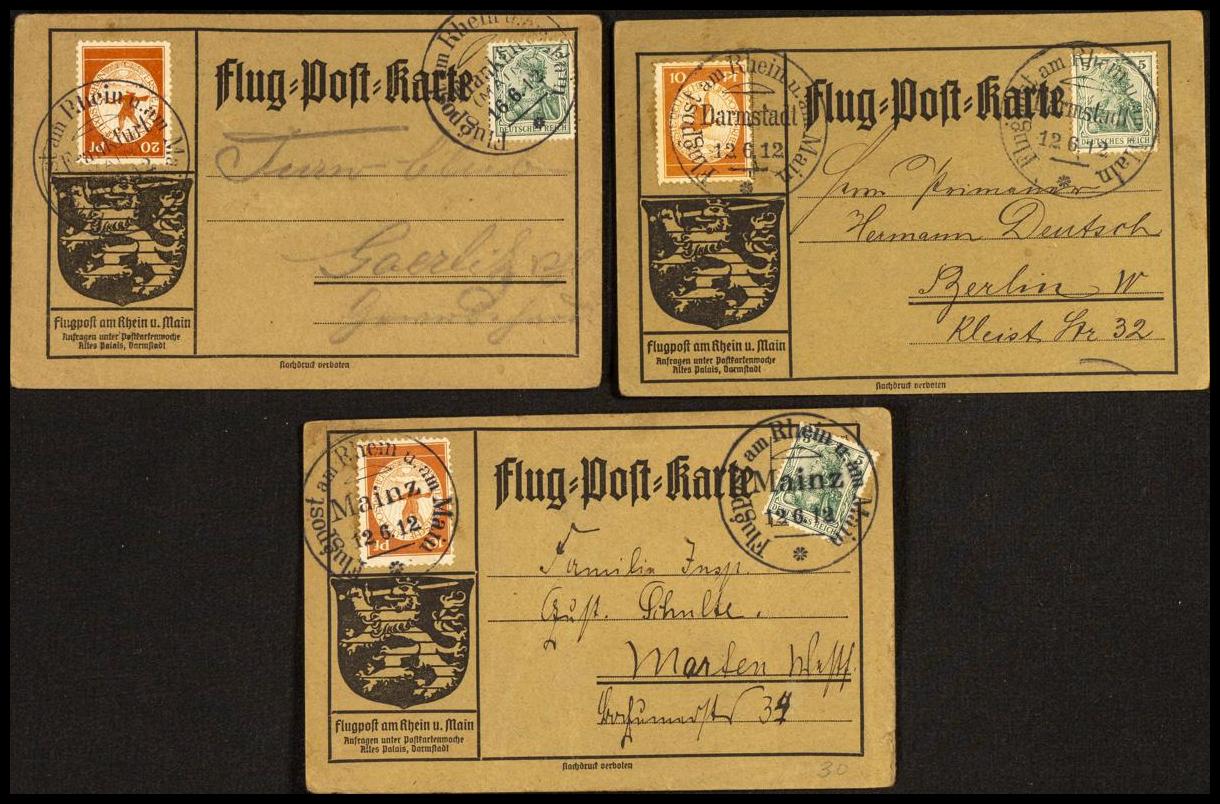 Flug=Post=Karte
20 Pf
Flugpost am Rhein u. am Main
Frankfurt
Flugpost am Rhein u. am Main
Frankfurt
16.6.12
DEUTSCHES REICH
Flugpost am Rhein u. Main
Anfragen unter Postkartenwoche
Altes Palais, Darmstadt
Nachdruck verboten
Flug=Post=Karte
10 Pf
Flugpost am Rhein u. am Main
Darmstadt
12.6.12
Flugpost am Rhein u. am Main
Darmstadt
12.6.12
5
DEUTSCHES REICH
Herrn Primaner
Hermann Deutsch
Berlin W
Kleist Str 32
Flugpost am Rhein u. Main
Anfragen unter Postkartenwoche
Altes Palais, Darmstadt
Nachdruck verboten
Flug=Post=Karte
Flugpost am Rhein u. am Main
Mainz
12.6.12
Pf
Flugpost am Rhein u. am Main
Mainz
12.6.12
DEUTSCHES REICH
Familie Insp.
Gust. Schulte.
Marten Westf.
Bochumerstr 34
Flugpost am Rhein u. Main
Anfragen unter Postkartenwoche
Altes Palais, Darmstadt
Nachdruck verboten
30